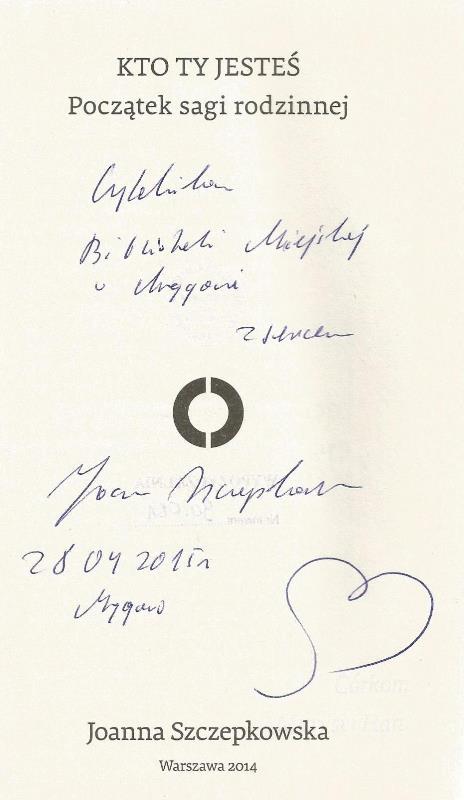 KTO TY JESTEŚ
Początek sagi rodzinnej
Czytelnikom
Biblioteki Miejskiej
w Mrągowie
z sercem
Joanna Szczepkowska
28 04 2015 r
Mrągowo
Joanna Szczepkowska
Warszawa 2014